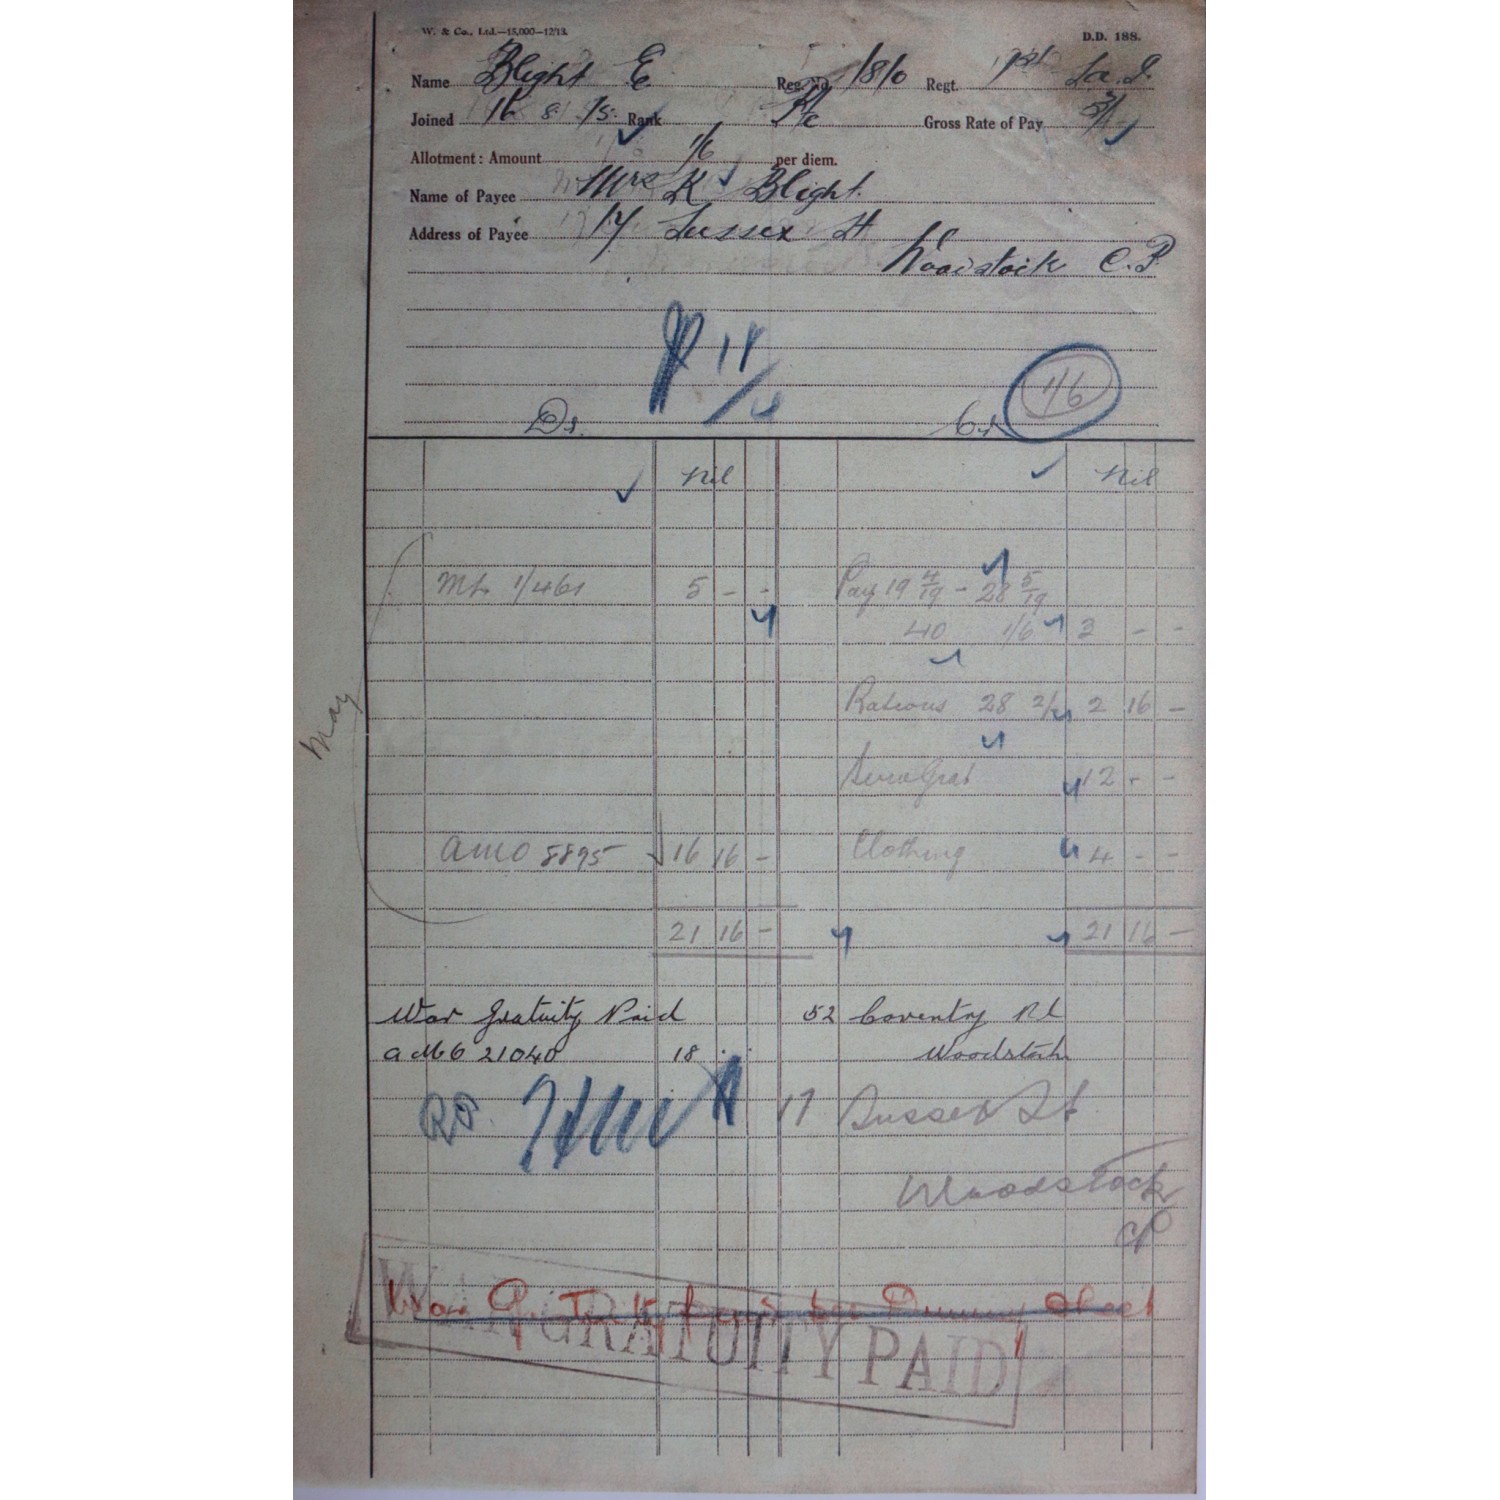 W. & Co., Ltd.—15,000—12/13. D.D. 188.
Name Blight E Reg. No. 1810 Regt. 1st
Joined 16 8 15 Rank Pte Gross Rate of Pay 3/-
Allotment: Amount 1/6 per diem.
Name of Payee Mrs K Blight.
Address of Payee 17 Sussex St
Woodstock C.P.
11
1/6
Dr. Cr.
Nil Nil
1/461 5 - - Pay 19 4/19 - 28 5/19
40 1/6 3 - -
Rations 28 2/- 2 16 -
May
Grat 12 - -
AMO 8895 16 16 - Clothing 4 - -
21 16 - 21 16 -
War Gratuity Paid 52 Coventry Rd
21040 18 . . Woodstock
17 Sussex St
Woodstock
CP
War Gratuity paid per Dummy Sheet
WAR GRATUITY PAID